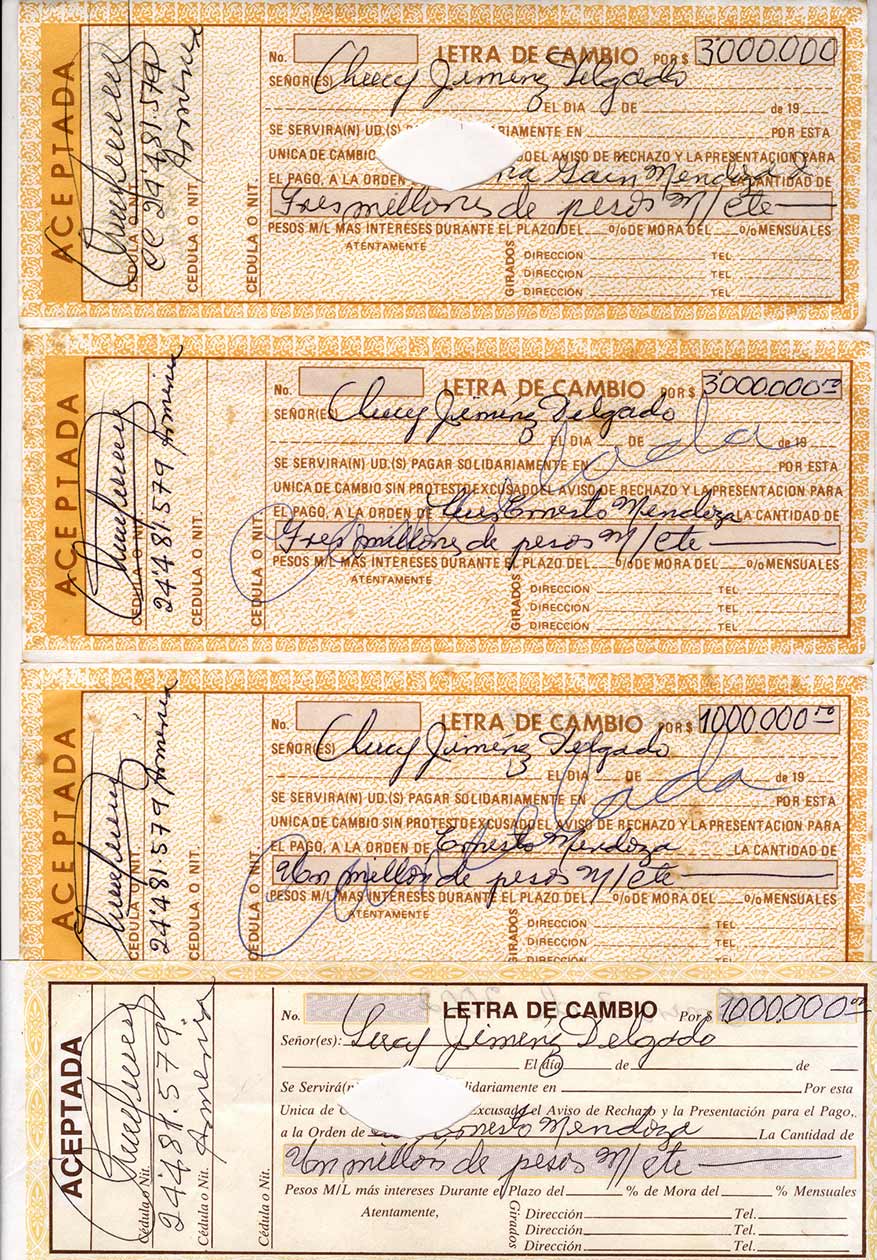 ACEPTADA
CEDULA O NIT.
CC 24'481.579
Armenia
CEDULA O NIT.
CEDULA O NIT.
No. LETRA DE CAMBIO POR $ 3'000.000
SEÑOR(ES) Lucy Jiménez Delgado
EL DIA DE de 19
SE SERVIRA(N) UD.(S) SOLIDARIAMENTE EN POR ESTA
UNICA DE CAMBIO DEL AVISO DE RECHAZO Y LA PRESENTACION PARA
EL PAGO, A LA ORDEN Mendoza LA CANTIDAD DE
Tres millones de pesos M/cte
PESOS M/L MAS INTERESES DURANTE EL PLAZO DEL % DE MORA DEL % MENSUALES
ATENTAMENTE
GIRADOS
DIRECCION TEL
DIRECCION TEL
DIRECCIÓN TEL
ACEPTADA
CEDULA O NIT.
24'481579 Armenia
CEDULA O NIT.
CEDULA O NIT.
No. LETRA DE CAMBIO POR $ 3'000.000 00
SEÑOR(ES) Lucy Jiménez Delgado
EL DIA DE de 19
SE SERVIRA(N) UD.(S) PAGAR SOLIDARIAMENTE EN POR ESTA
UNICA DE CAMBIO SIN PROTESTO EXCUSADO EL AVISO DE RECHAZO Y LA PRESENTACION PARA
EL PAGO, A LA ORDEN DE Luis Ernesto Mendoza LA CANTIDAD DE
Tres millones de pesos M/cte
Cancelada
PESOS M/L MAS INTERESES DURANTE EL PLAZO DEL % DE MORA DEL % MENSUALES
ATENTAMENTE
GIRADOS
DIRECCIÓN TEL
DIRECCIÓN TEL
DIRECCIÓN TEL
ACEPTADA
CEDULA O NIT.
24'481.579, Armenia
CEDULA O NIT.
CEDULA O NIT.
No. LETRA DE CAMBIO POR $ 1'000.000 00
SEÑOR(ES) Lucy Jiménez Delgado
EL DIA DE de 19
SE SERVIRA(N) UD.(S) PAGAR SOLIDARIAMENTE EN POR ESTA
UNICA DE CAMBIO SIN PROTESTO EXCUSADO EL AVISO DE RECHAZO Y LA PRESENTACION PARA
EL PAGO, A LA ORDEN DE Ernesto Mendoza LA CANTIDAD DE
Un millón de pesos M/cte
Cancelada
PESOS M/L MAS INTERESES DURANTE EL PLAZO DEL % DE MORA DEL % MENSUALES
ATENTAMENTE
GIRADOS
DIRECCIÓN TEL
DIRECCIÓN TEL
DIRECCIÓN TEL
ACEPTADA
Cédula o Nit.
24'481.579
Armenia
Cédula o Nit.
Cédula o Nit.
No. LETRA DE CAMBIO Por $ 1'000.000 00
Señor(es): Lucy Jiménez Delgado
El día de de
Se Servirá(n) Solidariamente en Por esta
Unica de Excusado el Aviso de Rechazo y la Presentación para el Pago,
a la Orden de Ernesto Mendoza La Cantidad de
Un millón de pesos M/cte
Pesos M/L más intereses Durante el Plazo del % de Mora del % Mensuales
Atentamente,
Girados
Dirección Tel.
Dirección Tel.
Dirección Tel.